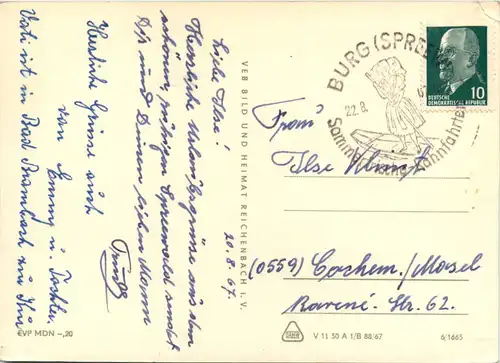 Liebe Ilse!
Herzliche Urlaubsgrüße aus dem
schönen, ruhigen Spreewald sendet
Dir und Deinem lieben Mann
Trudl
20.8.67.
Herzliche Grüsse auch
von Emmy u. Tochter.
Vati ist in Bad Brambach zur Kur
EVP MDN –,20
VEB BILD UND HEIMAT REICHENBACH I. V.
BURG (SPREEW
22.8.
Kahnfahrten
DEUTSCHE
DEMOKRATISCHE REPUBLIK
10
Frau
Ilse
(0559) Cochem/Mosel
Ravené-Str. 62.
V 11 50 A 1/B 88/67
6/1665